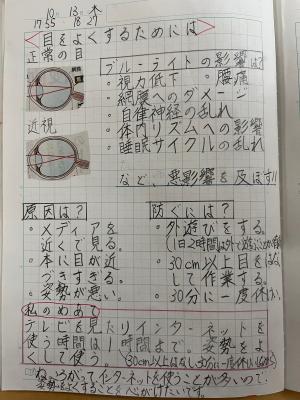 10/13 木
17:55 18:27
<目をよくするためには>
正常の目
近視
ブルーライトの影響は?
・視力低下 ・腰痛
・網膜へのダメージ
・自律神経の乱れ
・体内リズムへの影響
・睡眠サイクルの乱れ
など、悪影響を及ぼす!!
原因は?
・メディアを
近くで見る。
・本に目が近
づきすぎる。
・姿勢が悪い。
防ぐには?
・外遊びをする。
(1日2時間は外で遊ぶことが
・30cm以上目をはな
して作業する。
・30分に一度休け
私のめあて
テレビを見たりインターネットを
使う時間は1時間まで。姿勢をよ
くして使う。(30cm以上はなし30分に一度休けい
インターネットを使うことが多いので
姿勢をよくすることを心がけたいです。